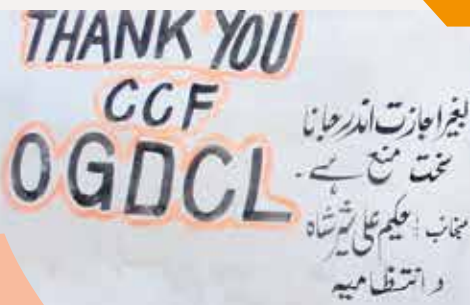 THANK YOU
CCF
OGDCL
بغیر اجازت اندر جانا
سخت منع ہے۔
منجانب : حکیم علی شیر شاہ
و انتظامیہ